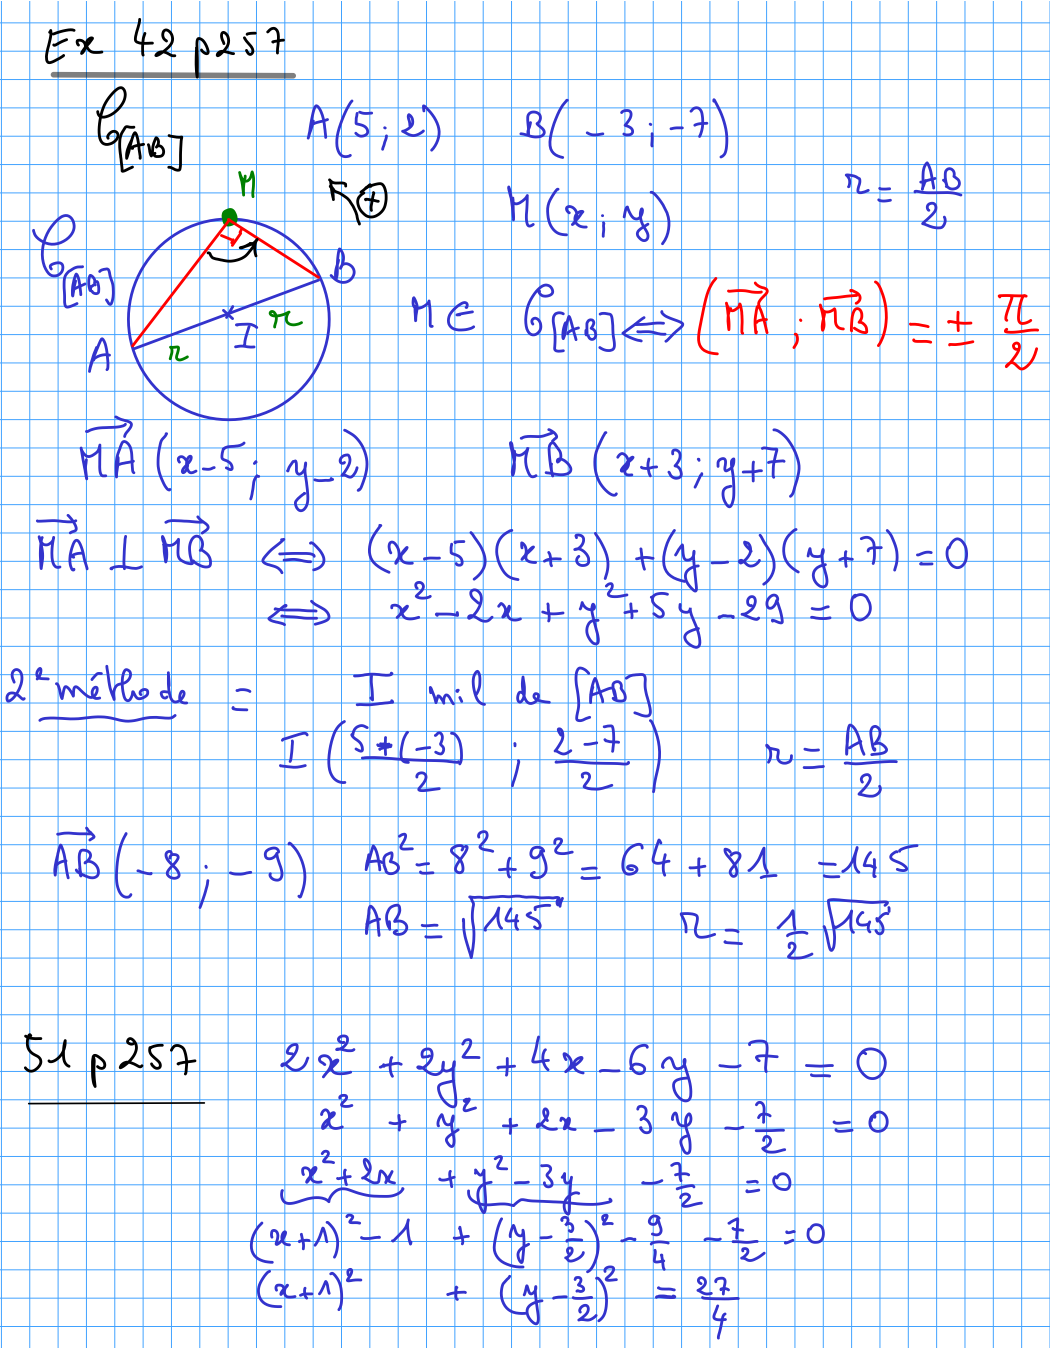 Ex 42 p257
𝒞[AB] A(5 ; 2) B(-3 ; -7)
M(x ; y) r = AB/2
M ⊕
𝒞[AB] A B I r r
M ∈ 𝒞[AB] ⟺ (MA⃗ ; MB⃗) = ± π/2
MA⃗ (x-5 ; y-2) MB⃗ (x+3 ; y+7)
MA⃗ ⊥ MB⃗ ⟺ (x-5)(x+3) + (y-2)(y+7) = 0
⟺ x² - 2x + y² + 5y - 29 = 0
2e méthode = I mil de [AB]
I ( (5+(-3))/2 ; (2-7)/2 ) r = AB/2
AB⃗ (-8 ; -9) AB² = 8² + 9² = 64 + 81 = 145
AB = √145 r = 1/2 √145
51 p 257 2x² + 2y² + 4x - 6y - 7 = 0
x² + y² + 2x - 3y - 7/2 = 0
x² + 2x + y² - 3y - 7/2 = 0
(x+1)² - 1 + (y - 3/2)² - 9/4 - 7/2 = 0
(x+1)² + (y - 3/2)² = 27/4